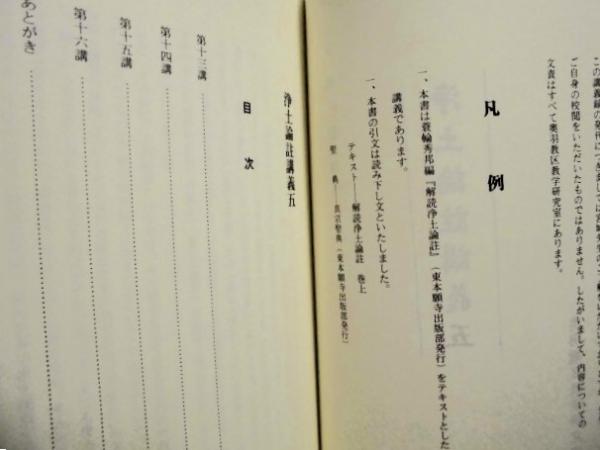 ご自身の校閲をいただいたものではありません。したがいまして、内容についての
文責はすべて奥羽教区教学研究室にあります。
凡例
一、本書は蓑輪秀邦編『解読浄土論註』(東本願寺出版部発行)をテキストとした
講義であります。
一、本書の引文は読み下し文といたしました。
テキスト──解読浄土論註 巻上
聖典──真宗聖典(東本願寺出版部発行)
浄土論註講義五
目次
第十三講
第十四講
第十五講
第十六講
あとがき